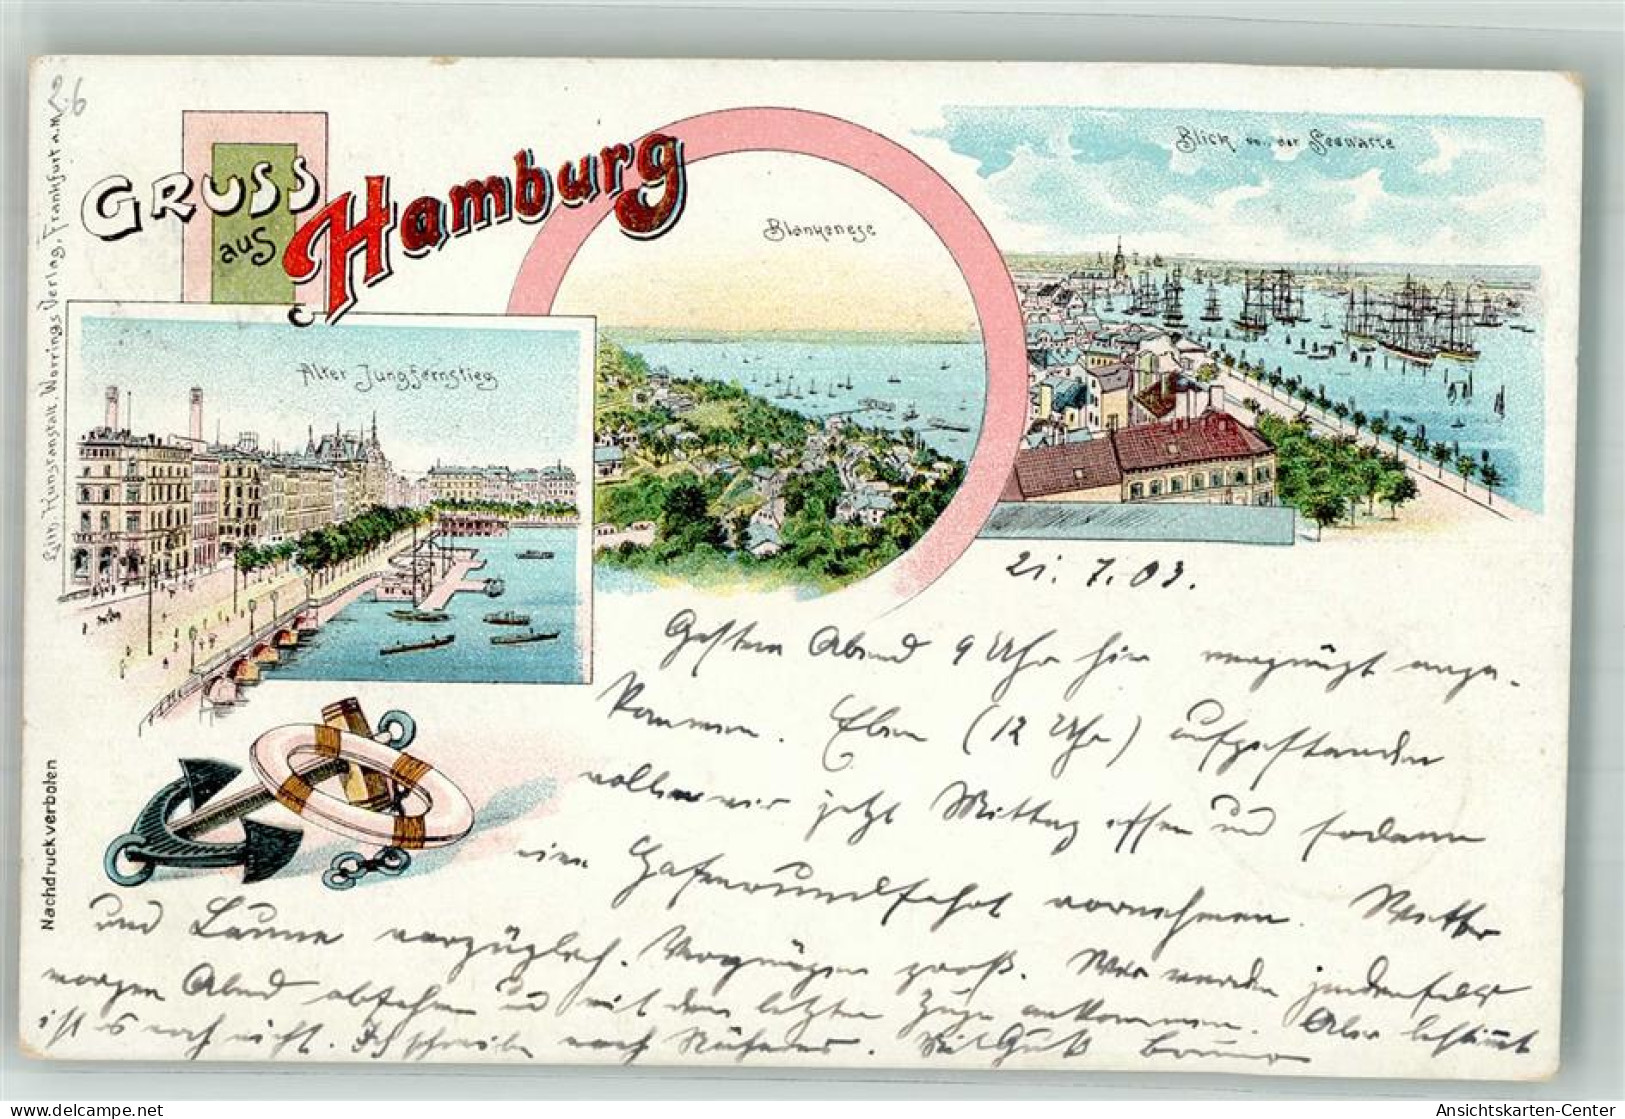 26
Lith. Kunstanstalt, Worrings Verlag, Frankfurt a.M.
Gruss
aus
Hamburg
Blankenese
Blick von der Seewarte
Alter Jungfernstieg
Nachdruck verboten
21.7.03.
Gestern Abend 9 Uhr hier vergnügt ange-
kommen. Eben (12 Uhr) aufgestanden
wollen wir jetzt Mittag essen und sodann
eine Hafenrundfahrt vornehmen. Wetter
und Laune vorzüglich. Vergnügen groß. Wir werden jedenfalls
morgen Abend abfahren u mit dem letzten Zuge ankommen. Aber bestimmt
ist es noch nicht. Ich schreibe noch Näheres. Mit Gruß
Ansichtskarten-Center
www.delcampe.net